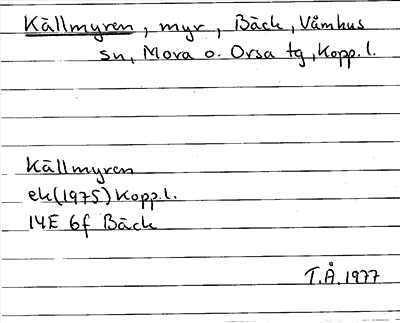 Källmyren, myr, Bäck, Våmhus
sn, Mora o. Orsa tg, Kopp. l.
Källmyren
ek (1975) Kopp. l.
14E 6f Bäck
T.Å. 1977